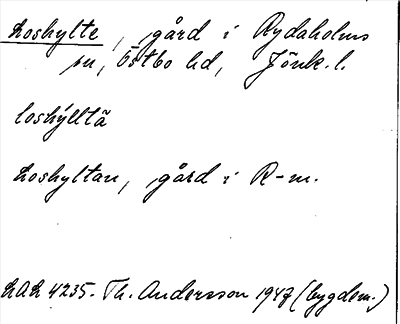 Loshylte, gård i Rydaholms
sn, Östbo hd, Jönk. l.
loshýlltä
Loshyltan, gård i R-m.
LAL 4235. Th. Andersson 1947 (bygdem.)